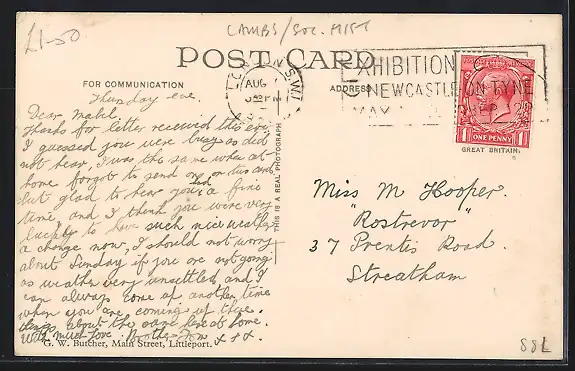 £1-50
CAMBS/SOC. HIST
POST CARD
FOR COMMUNICATION
ADDRESS
LONDON. S.W.1
AUG
EXHIBITION
NEWCASTLE ON TYNE
MAY
GREAT BRITAIN.
1 ONE PENNY 1
THIS IS A REAL PHOTOGRAPH
Thursday eve.
Dear Mabel.
Thanks for letter received this eve,
I guessed you were busy as did
not hear, I was the same when at
home forgot to send one or two cards
but glad to hear you had a fine
time and I think you were very
lucky to have such nice weather
a change now, I should not worry
about Sunday if you are not going
as weather very unsettled, and I
can always come up another time
when you are coming up there.
things about the same here at home.
With much love Brother Tom x + x.
G. W. Butcher, Main Street, Littleport.
Miss M Hooper.
"Rostrevor"
37 Prentis Road.
Streatham
88L